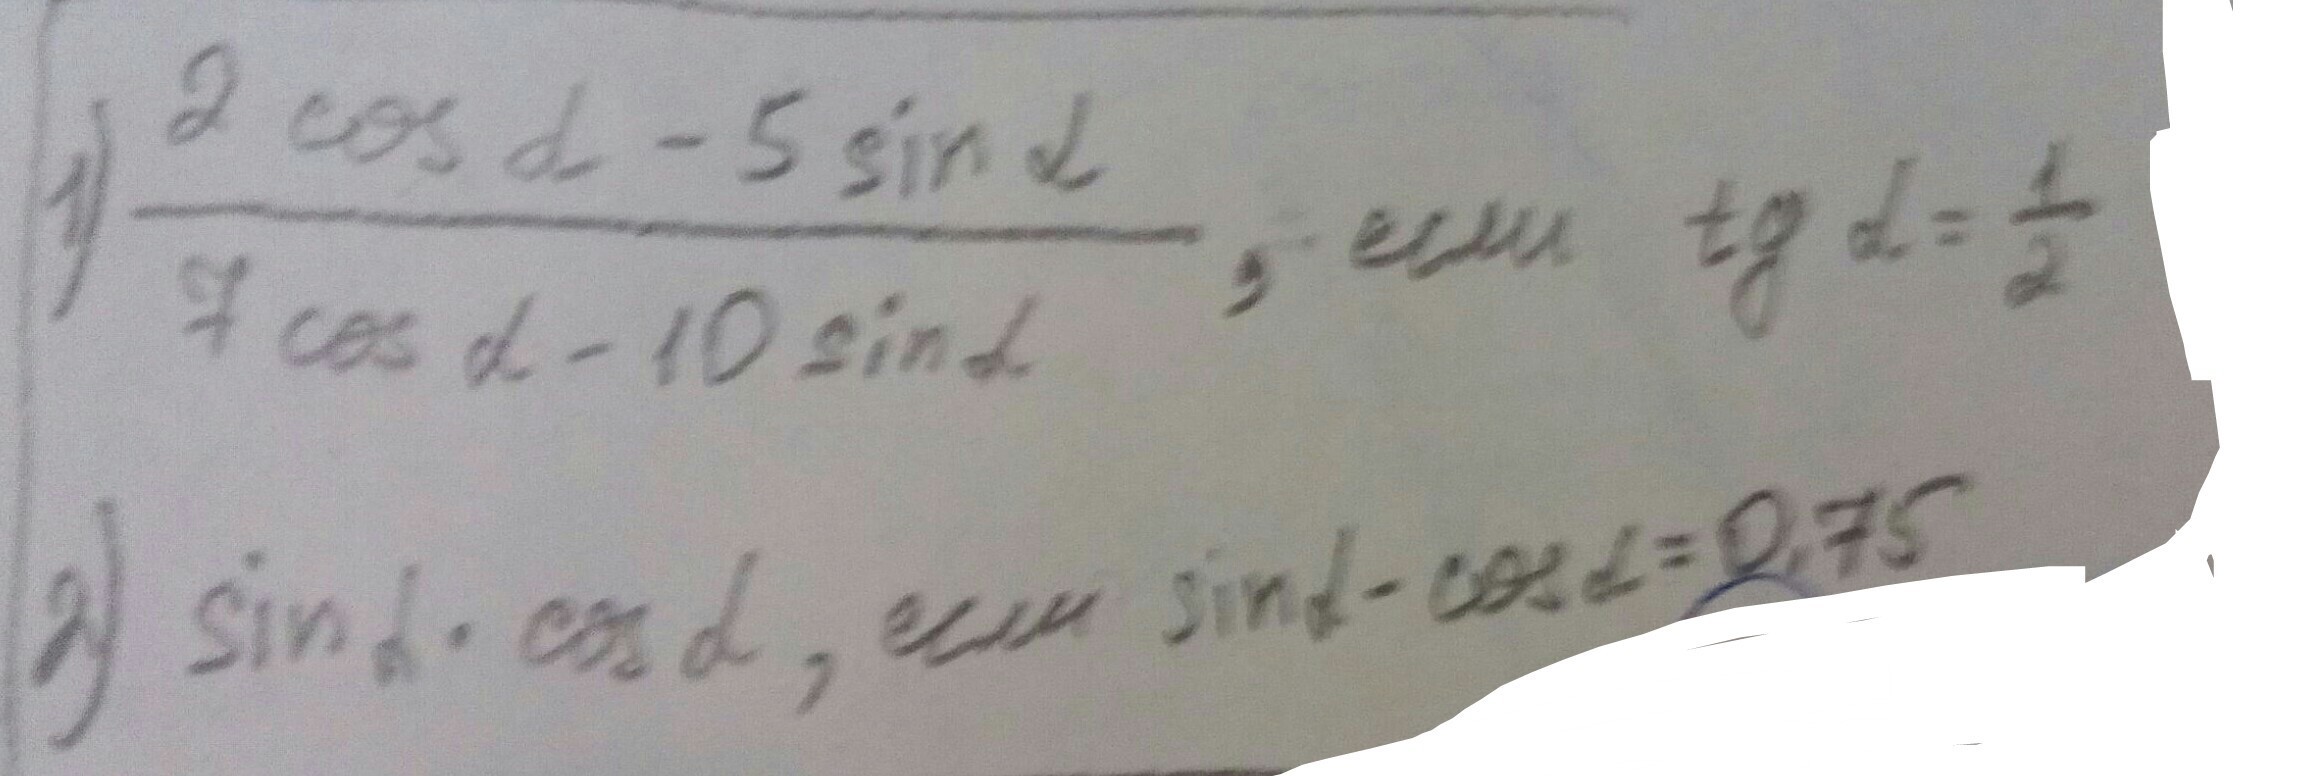 1) (2 cos α - 5 sin α) / (7 cos α - 10 sin α), если tg α = 1/2
2) sin α · cos α, если sin α - cos α = 0,75